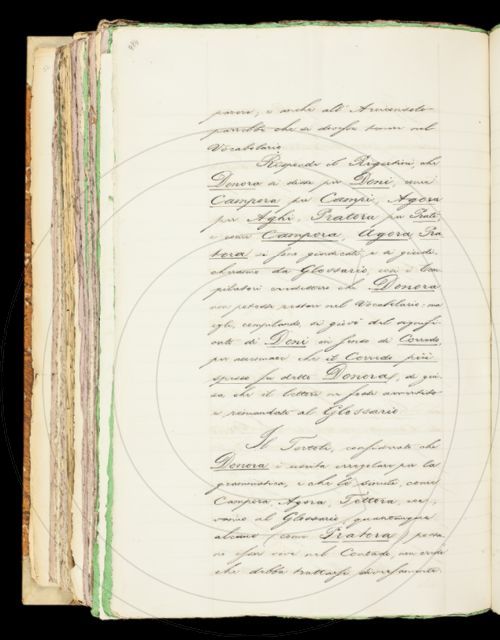 parere, e anche all' Arciconsolo
parrebbe che si dovesse tenere nel
Vocabolario.
Risponde il Rigutini, che
Donora si disse per Doni, come
Campora per Campi, Agora
per Aghi, Pratora per Prati
e come Campora, Agora Pra
tora si sono giudicati, e si giudi-
cheranno da Glossario, così i Com
pilatori credettero che Donora
non potesse restare nel Vocabolario: ma
egli, compilando, si giovò del signifi-
cato di Doni in senso di Corredo,
per accennare che il Corredo più
spesso fu detto Donora, di gui-
sa che il lettore ne fosse avvertito
e rimandato al Glossario.
Il Tortoli, confermato che
Donora è uscita irregolare per la
grammatica, e che le simili, come
Campora, Agora, Tettora, ver-
ranno al Glossario, quantunque
alcuno (come Pratora) possa
esser vivo nel Contado,
che debba trattarsi diversamente